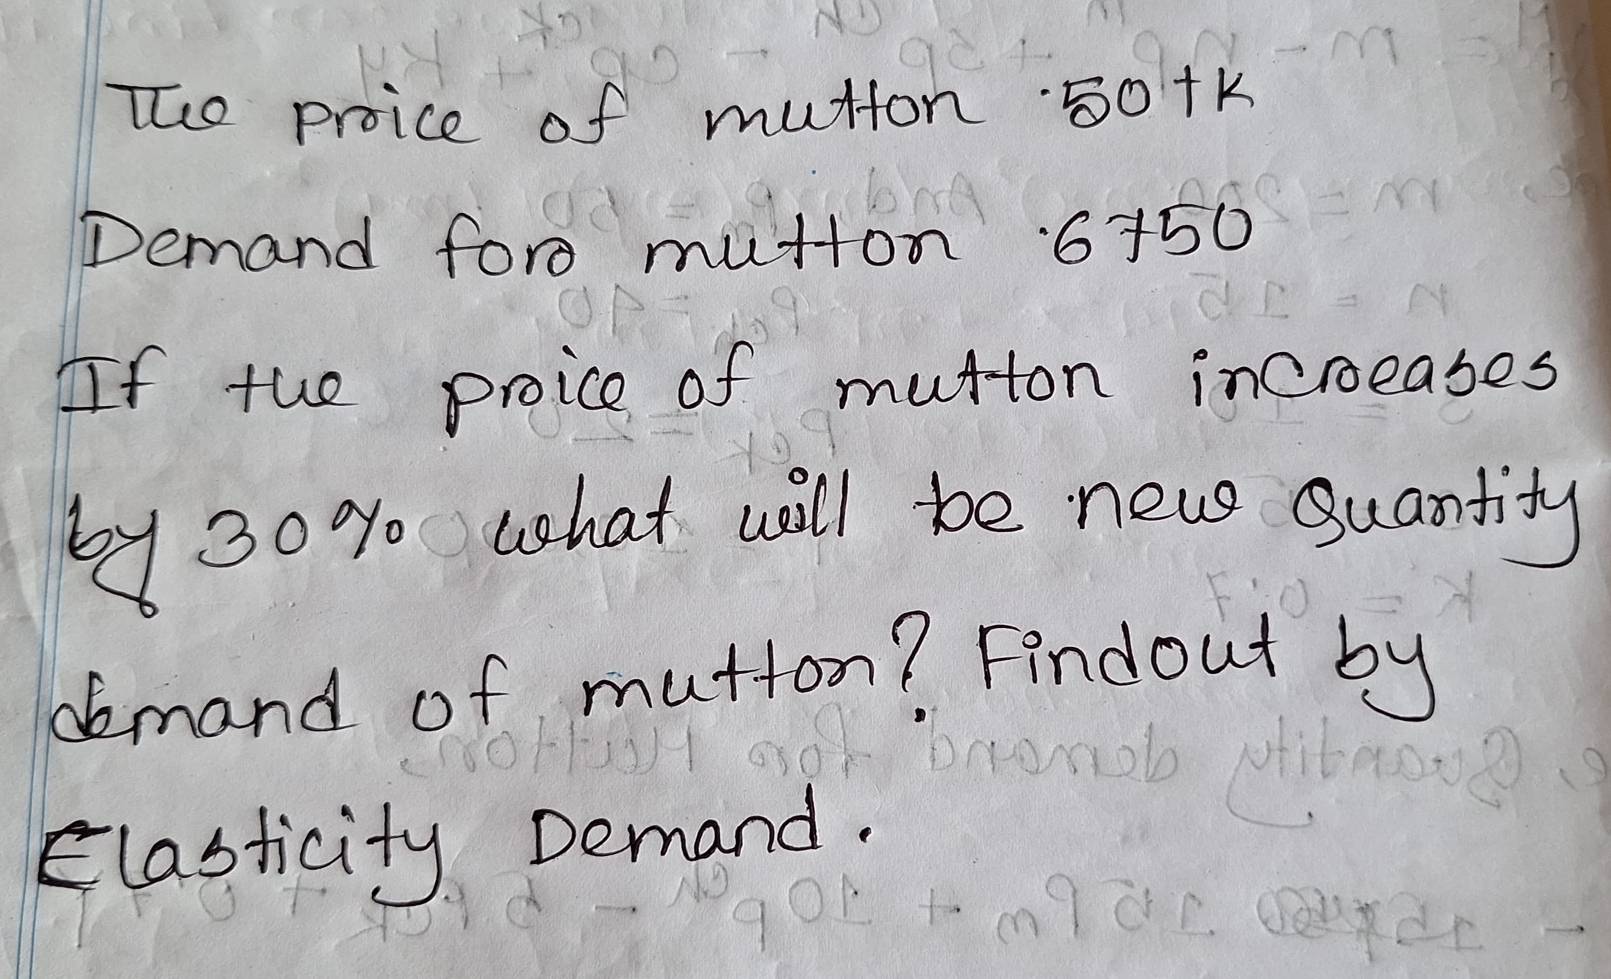 The price of mutton . 50 tk
Demand for mutton . 6750
If the price of mutton increases
by 30% what will be new Quantity
demand of mutton? Findout by
Elasticity Demand.